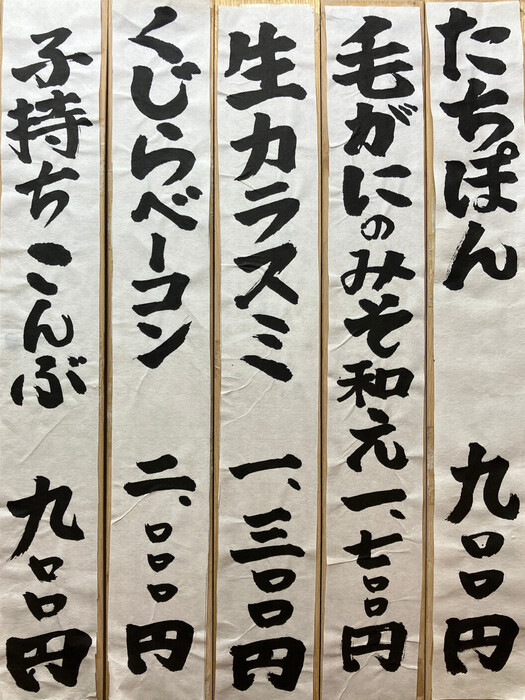 たちぽん 九〇〇円
毛がにのみそ和え 一、七〇〇円
生カラスミ 一、三〇〇円
くじらベーコン 二、〇〇〇円
子持ちこんぶ 九〇〇円